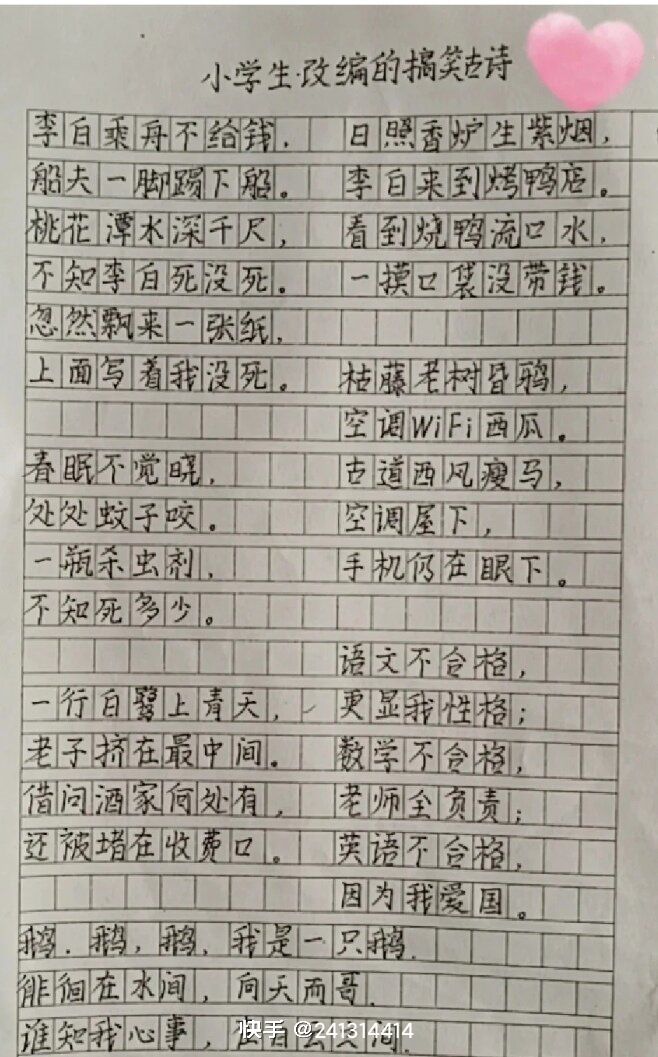 小学生·改编的搞笑古诗
李白乘舟不给钱，
船夫一脚踢下船。
桃花潭水深千尺，
不知李白死没死。
忽然飘来一张纸，
上面写着我没死。
春眠不觉晓，
处处蚊子咬。
一瓶杀虫剂，
不知死多少。
一行白鹭上青天，
老子挤在最中间。
借问酒家何处有，
还被堵在收费口。
日照香炉生紫烟，
李白来到烤鸭店。
看到烧鸭流口水，
一摸口袋没带钱。
枯藤老树昏鸦，
空调WiFi西瓜。
古道西风瘦马，
空调屋下，
手机仍在眼下。
语文不合格，
更显我性格；
数学不合格，
老师全负责；
英语不合格，
因为我爱国。
鹅．鹅，鹅．我是一只鹅．
徘徊在水间，向天而哥．
谁知我心事，
快手 @241314414